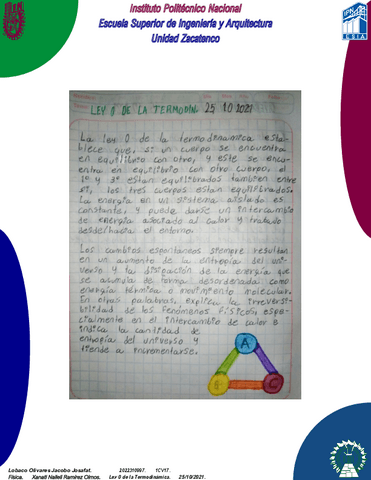 Instituto Politécnico Nacional
Escuela Superior de Ingeniería y Arquitectura
Unidad Zacatenco
ESIA
LEY 0 DE LA TERMODIN. 25 10 2021
La ley 0 de la termodinamica esta-
blece que, si un cuerpo se encuentra
en equilibrio con otro, y este se encu-
entra en equilibrio con otro cuerpo, el
1° y 3° estan equilibrados tambien entre
si, los tres cuerpos estan equilibrados.
La energia en un sistema aislado es
constante, y puede darse un intercambio
de energia asociado al calor y trabajo
desde/hacia el entorno.
Los cambios espontaneos siempre resultan
en un aumento de la entropia del uni-
verso y la disipación de la energia que
se acumula de forma desordenada como
energia termica o movimiento molecular.
En otras palabras, explica la irreversi-
bilidad de los fenomenos fisicos, espe-
cialmente en el intercambio de calor e
indica la cantidad de
entropia del universo y
tiende a incrementarse.
A
B
C
Lobaco Olivares Jacobo Josafat. 2022310097. 1CV17.
Física. Xanati Nalleli Ramírez Olmos. Ley 0 de la Termodinámica. 25/10/2021.